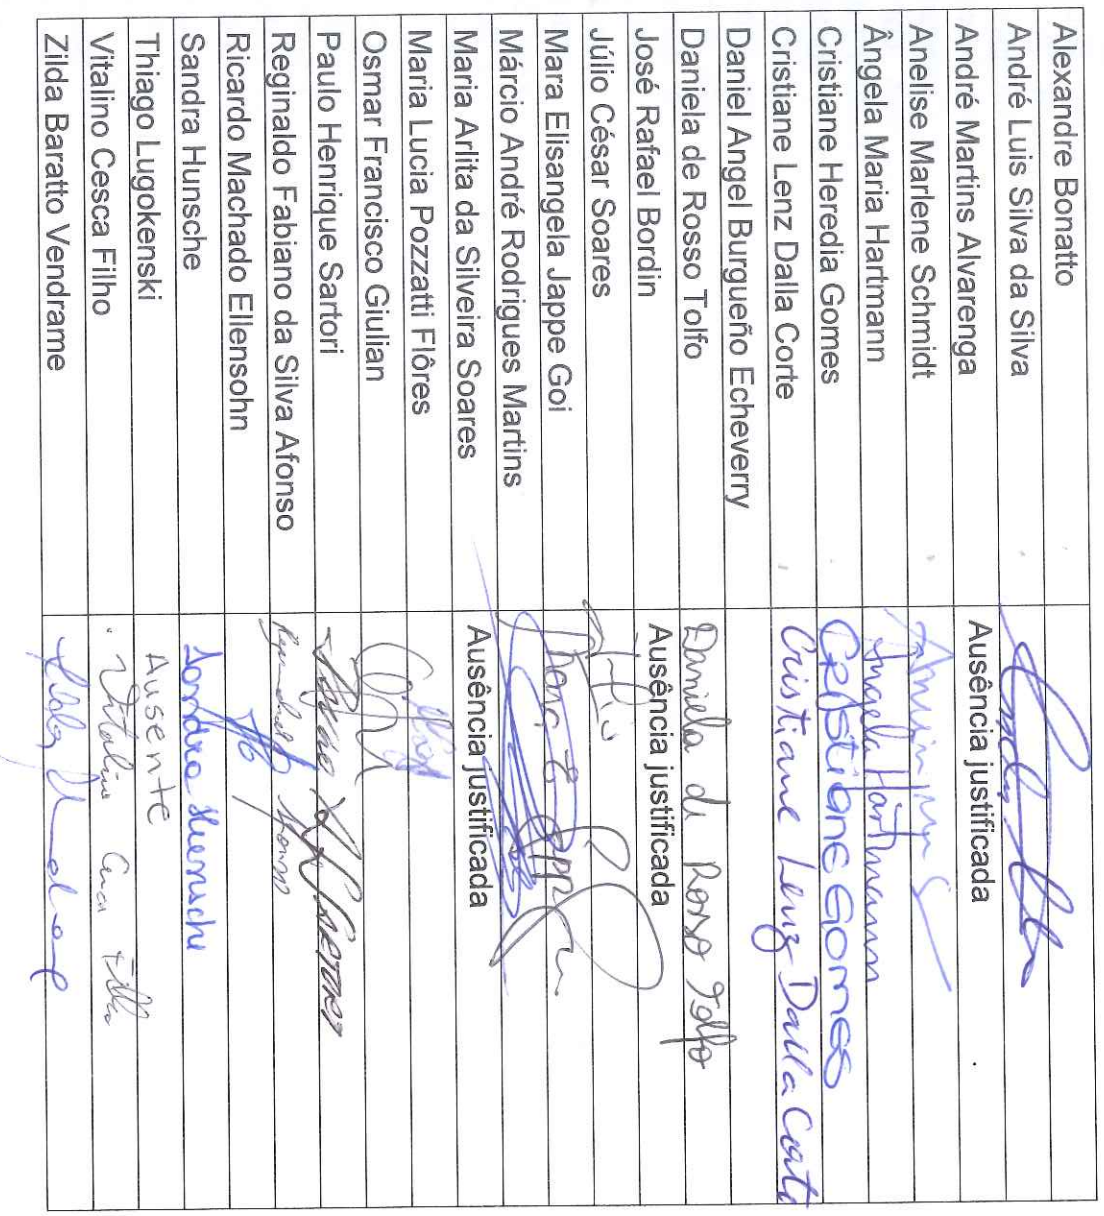 Alexandre Bonatto
André Luis Silva da Silva
André Martins Alvarenga Ausência justificada
Anelise Marlene Schmidt
Ângela Maria Hartmann Ângela Hartmann
Cristiane Heredia Gomes CRIStiANE GOmes
Cristiane Lenz Dalla Corte Cristiane Lenz Dalla Corte
Daniel Angel Burgueño Echeverry
Daniela de Rosso Tolfo Daniela de Rosso Tolfo
José Rafael Bordin Ausência justificada
Júlio César Soares
Mara Elisangela Jappe Goi
Márcio André Rodrigues Martins
Maria Arlita da Silveira Soares Ausência justificada
Maria Lucia Pozzatti Flôres
Osmar Francisco Giulian
Paulo Henrique Sartori
Reginaldo Fabiano da Silva Afonso
Ricardo Machado Ellensohn
Sandra Hunsche Sandra Hunsche
Thiago Lugokenski Ausente
Vitalino Cesca Filho Vitalino Cesca Filho
Zilda Baratto Vendrame